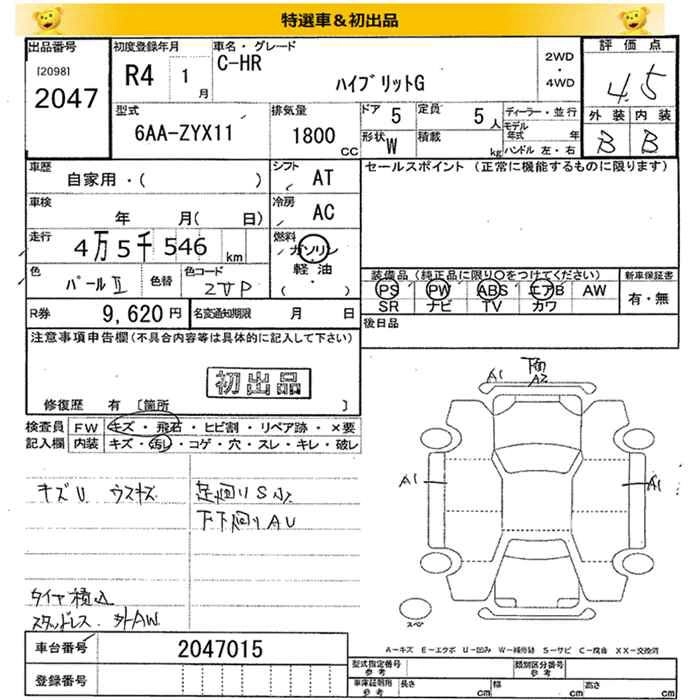 特選車&初出品
出品番号 初度登録年月 車名・グレード 評価点
[2098] R4 1月 C-HR 2WD・4WD 4.5
2047 ハイブリットG
型式 排気量 ドア 5 定員 5人 ディーラー・並行 外装 内装
6AA-ZYX11 1800CC 形状 W 積載 kg モデル年式 年 B B
ハンドル 左・右
車歴 シフト セールスポイント (正常に機能するものに限ります)
自家用・( ) AT
車検 冷房
年 月( 日) AC
走行 4万5千546km 燃料 ガソリン
軽油
( ・ )
色 パールⅡ 色替 色コード 装備品 (純正品に限り〇をつけてください) 新車保証書
PS PW ABS エアB AW 有・無
SR ナビ TV カワ
R券 9,620円 名変通知期限 月 日 後日品
注意事項申告欄(不具合内容等は具体的に記入して下さい)
初出品
修復歴 有 [箇所 ]
検査員 FW キズ・飛石・ヒビ割・リペア跡・×要
記入欄 内装 キズ・汚し・コゲ・穴・スレ・キレ・破レ
A1 下面 A2
A1 A1
キズU ウスキズ 足廻りS
下下廻りAU
タイヤ積込
スタッドレス 外AW
スペア
A-キズ E-エクボ U-凹み W-補修跡 S-サビ C-腐食 XX-交換済
車台番号 2047015
登録番号
型式指定番号 参考 類別区分番号 参考
車庫証明用 参考 長さ cm 幅 cm 高さ cm